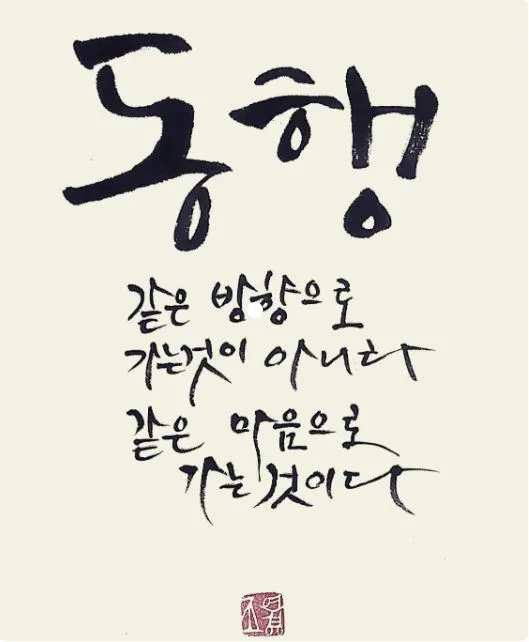 동행
같은 방향으로
가는것이 아니라
같은 마음으로
가는것이다